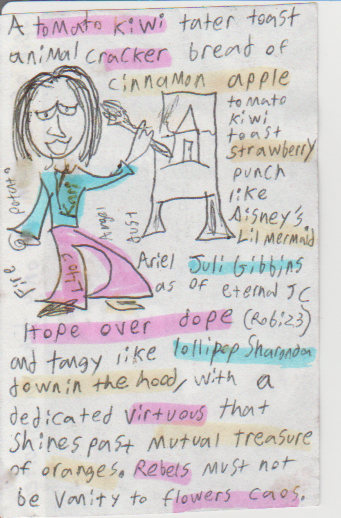 A tomato kiwi tater toast
animal cracker bread of
cinnamon apple
tomato
kiwi
toast
strawberry
punch
like
Disney's
Lil Mermaid
Fire @ potato
Kari
Angel
Dust
Ariel Juli Gibbins
as of eternal JC
Hope over dope (Rob123)
and tangy like lollipop Sharonda
down in the hood, with a
dedicated virtuous that
shines past mutual treasure
of oranges. Rebels must not
be Vanity to flowers caos.